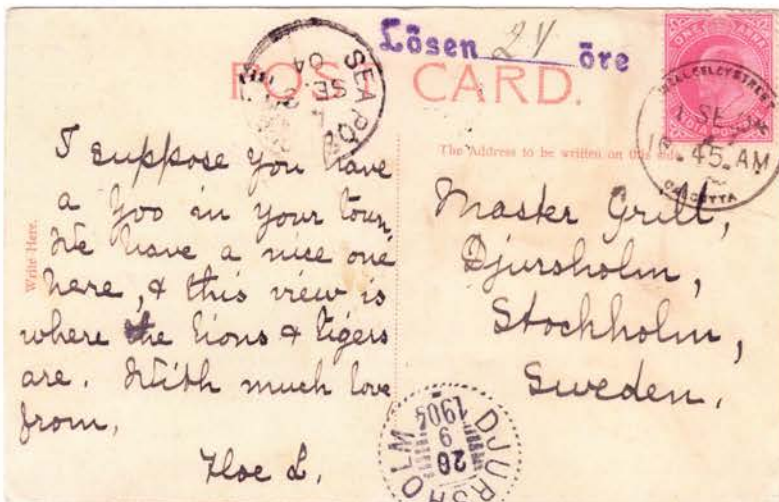 Lösen 24 öre
POST CARD.
SEA PO
SE.
04
ONE ANNA
INDIA POSTAGE
SE
45 AM
CALCUTTA
The Address to be written on this side.
Write Here.
I suppose you have
a Zoo in your town,
We have a nice one
here, & this view is
where the Lions & tigers
are. With much love
from,
Floe L.
Master Grill,
Djursholm,
Stockholm,
Sweden.
DJURSHOLM
20
9
1904